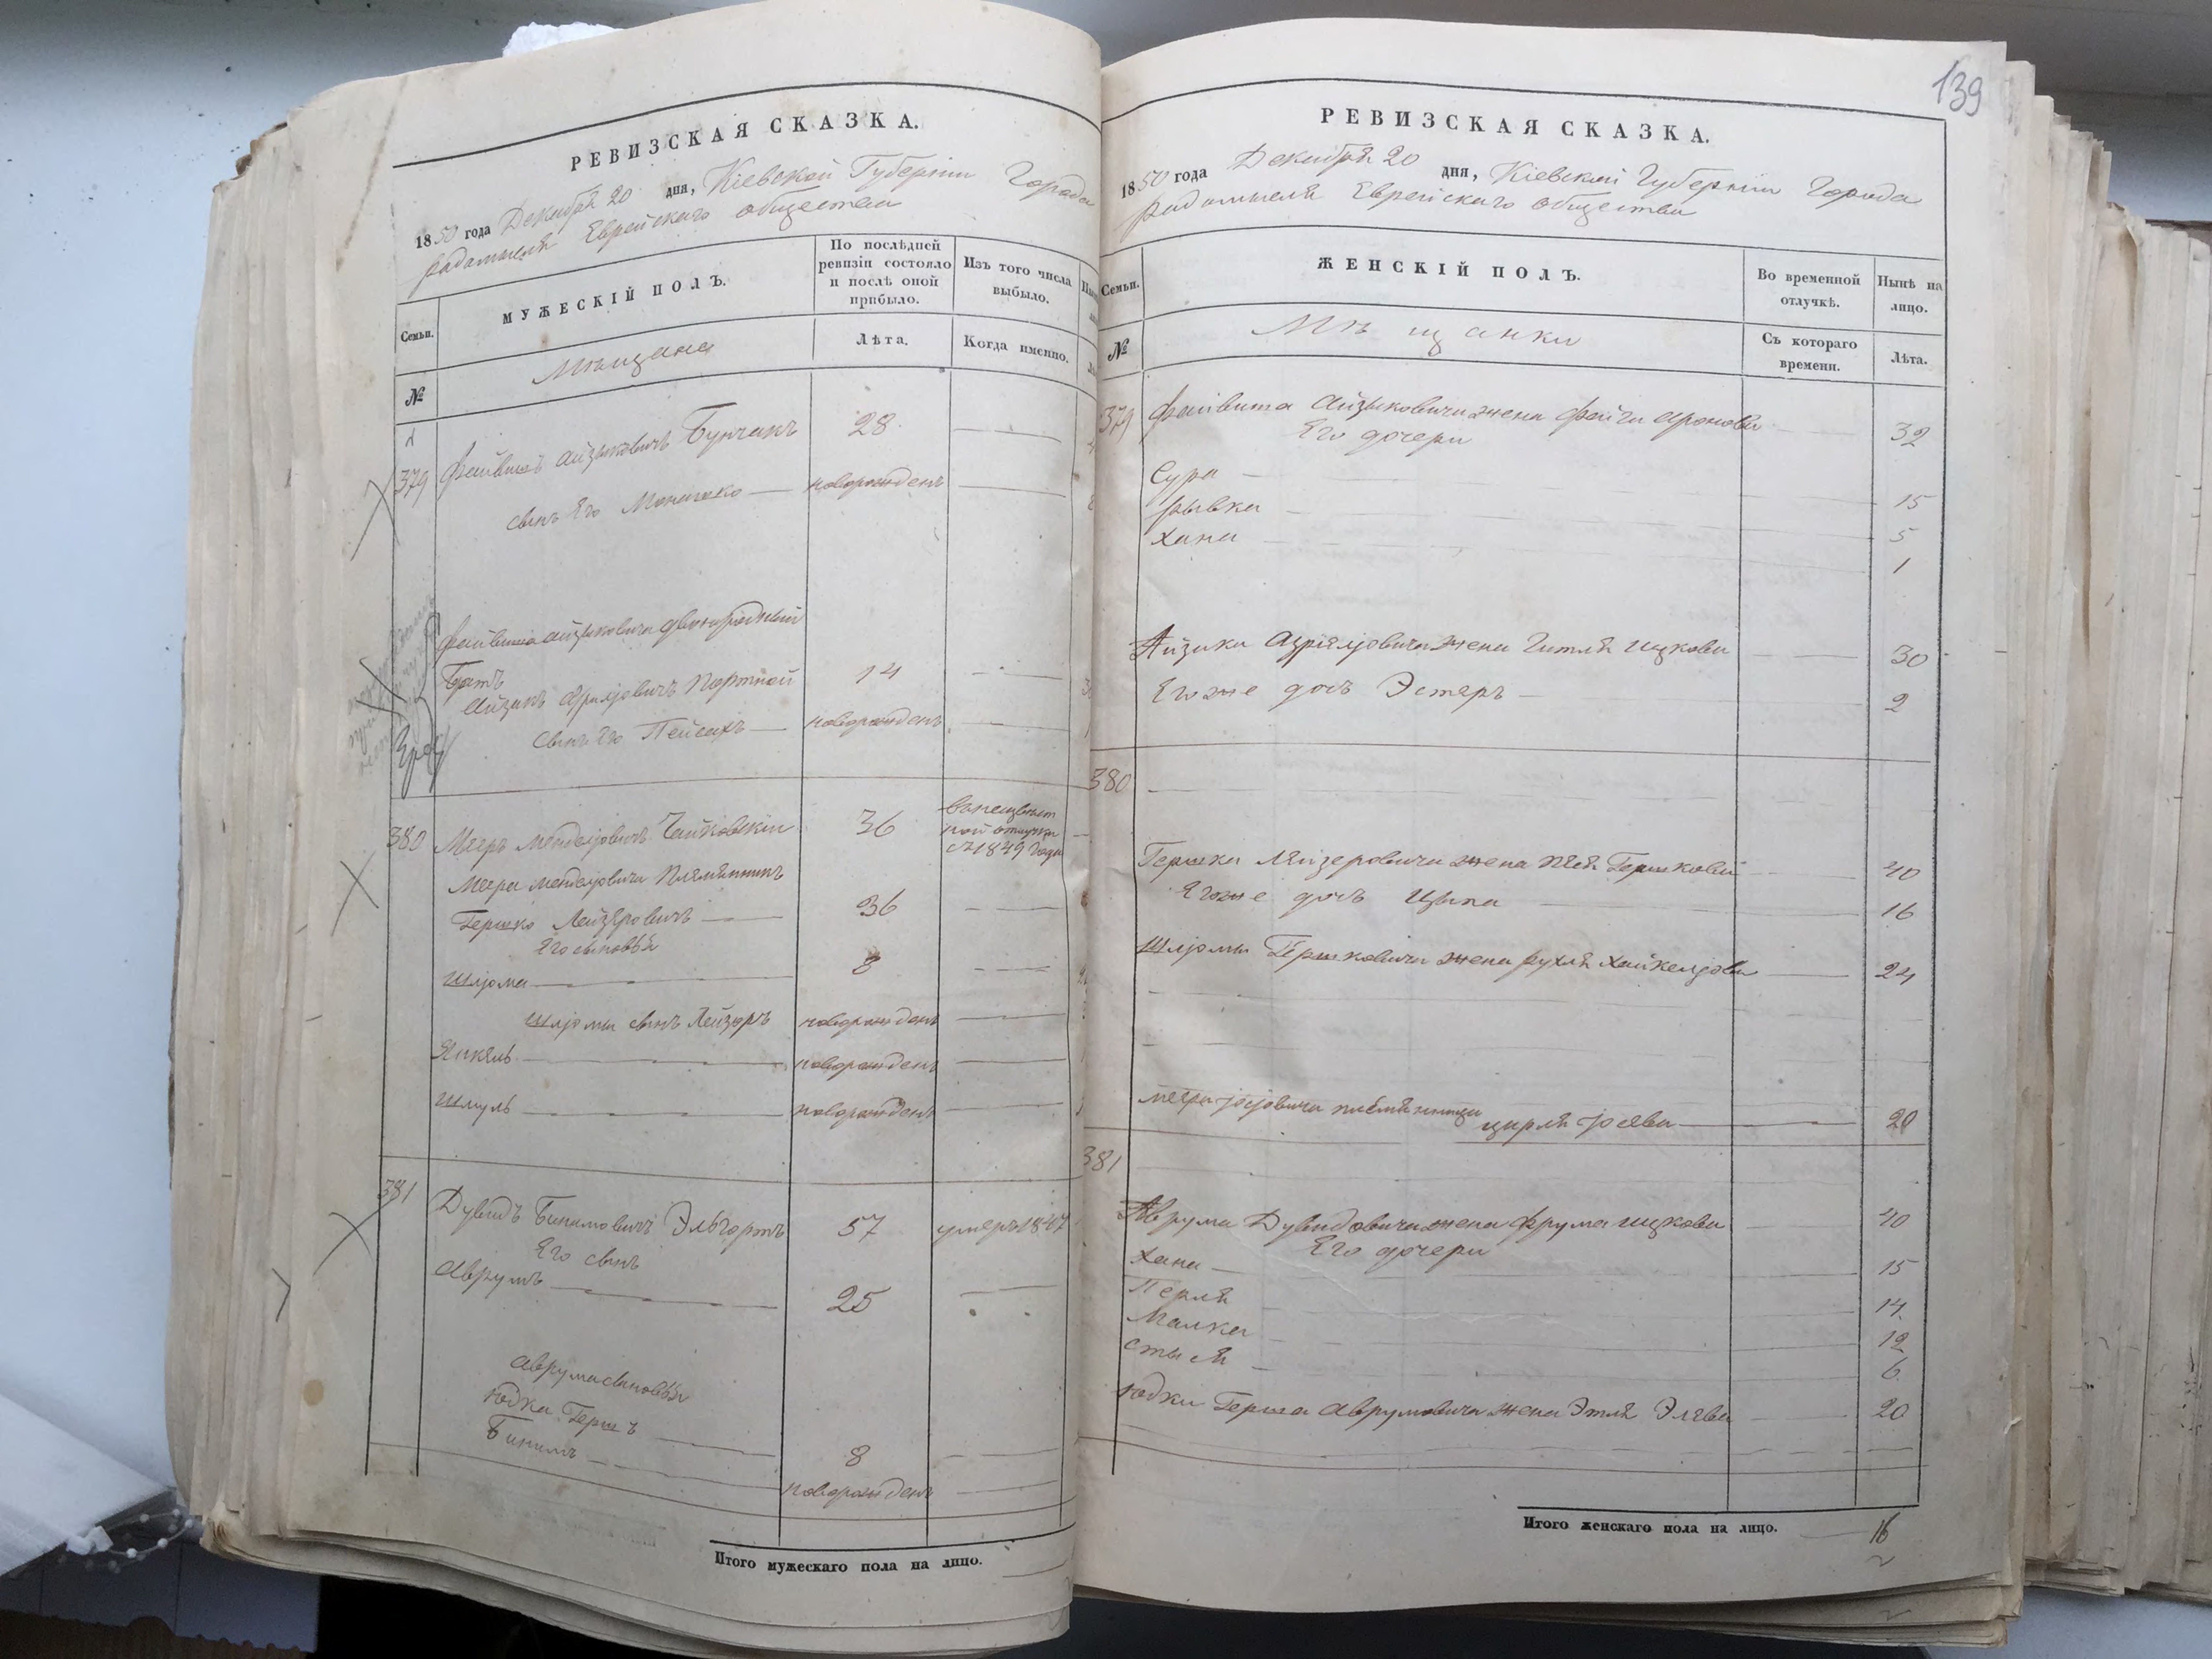 РЕВИЗСКАЯ СКАЗКА.
1850 года Декабря 20 дня, Кіевской Губерніи Города
Радомысля Еврейскаго общества
Семьи.
МУЖЕСКІЙ ПОЛЪ.
По послѣдней ревизіи состояло и послѣ оной прибыло.
Изъ того числа выбыло.
№
Мѣщане
Лѣта.
Когда именно.
379 Файвишъ Айзыковичъ Бунчакъ 28
сынъ Его Моншко новорожденъ
Файвиша Айзыковича двоюродный
Братъ
Айзикъ Азріліовичъ Портной 14
Сынъ Его Пейсахъ новорожденъ
380 Мееръ Мендлёвичъ Чайковскій 36
въ неизвѣст
ной отлучки
съ 1849 года
Меера Менделёвича Племянникъ
Гершко Лейзеровичъ 36
Его сыновья
Шлёма 8
Шлёмы сынъ Лейзоръ новорожденъ
Янкель новорожденъ
Шмуль новорожденъ
381 Дувидъ Бинимовичъ Эльгортъ 57 умеръ 1847
Его сынъ
Аврумъ 25
Аврума сыновья
Юдка Гершъ 8
Бинимъ новорожденъ
Итого мужескаго пола на лицо.
139
РЕВИЗСКАЯ СКАЗКА.
1850 года Декабря 20 дня, Кіевской Губерніи Города
Радомысля Еврейскаго общества
Семьи.
ЖЕНСКІЙ ПОЛЪ.
Во временной отлучкѣ.
Нынѣ на лицо.
№
Мѣщанки
Съ котораго времени.
Лѣта.
379 Файвиша Айзыковича жена Фейга Аронова 32
Его дочери
Сура 15
Рывка 5
Хана 1
Айзика Азріялёвича жена Гитля Ицкова 30
Его же дочь Эстеръ 2
380
Гершка Лейзеровича жена Нея Гершковa 40
Его же дочь Ципа 16
Шлёмы Гершковича жена Рухля Хайкелёва 24
Меера Іосіовича племянница
Цирля Іосева 20
381
Аврума Дувидовича жена Фрума Ицкова 40
Его дочери
Хана 15
Перля 14
Малка 12
Стыся 6
Юдки Герша Аврумовича жена Этля Элева 20
Итого женскаго пола на лицо. 16